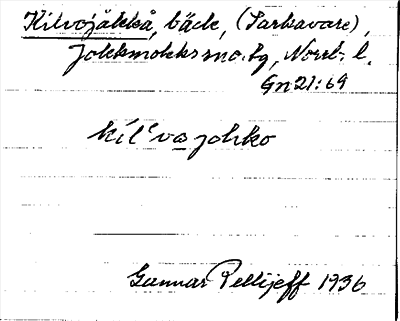 Kilvojåkkå, bäck, (Sarkavare),
Jokkmokks sn o. tg, Norrb. l.
Gn 21:69
kíl'va johko
Gunnar Pellijeff 1936